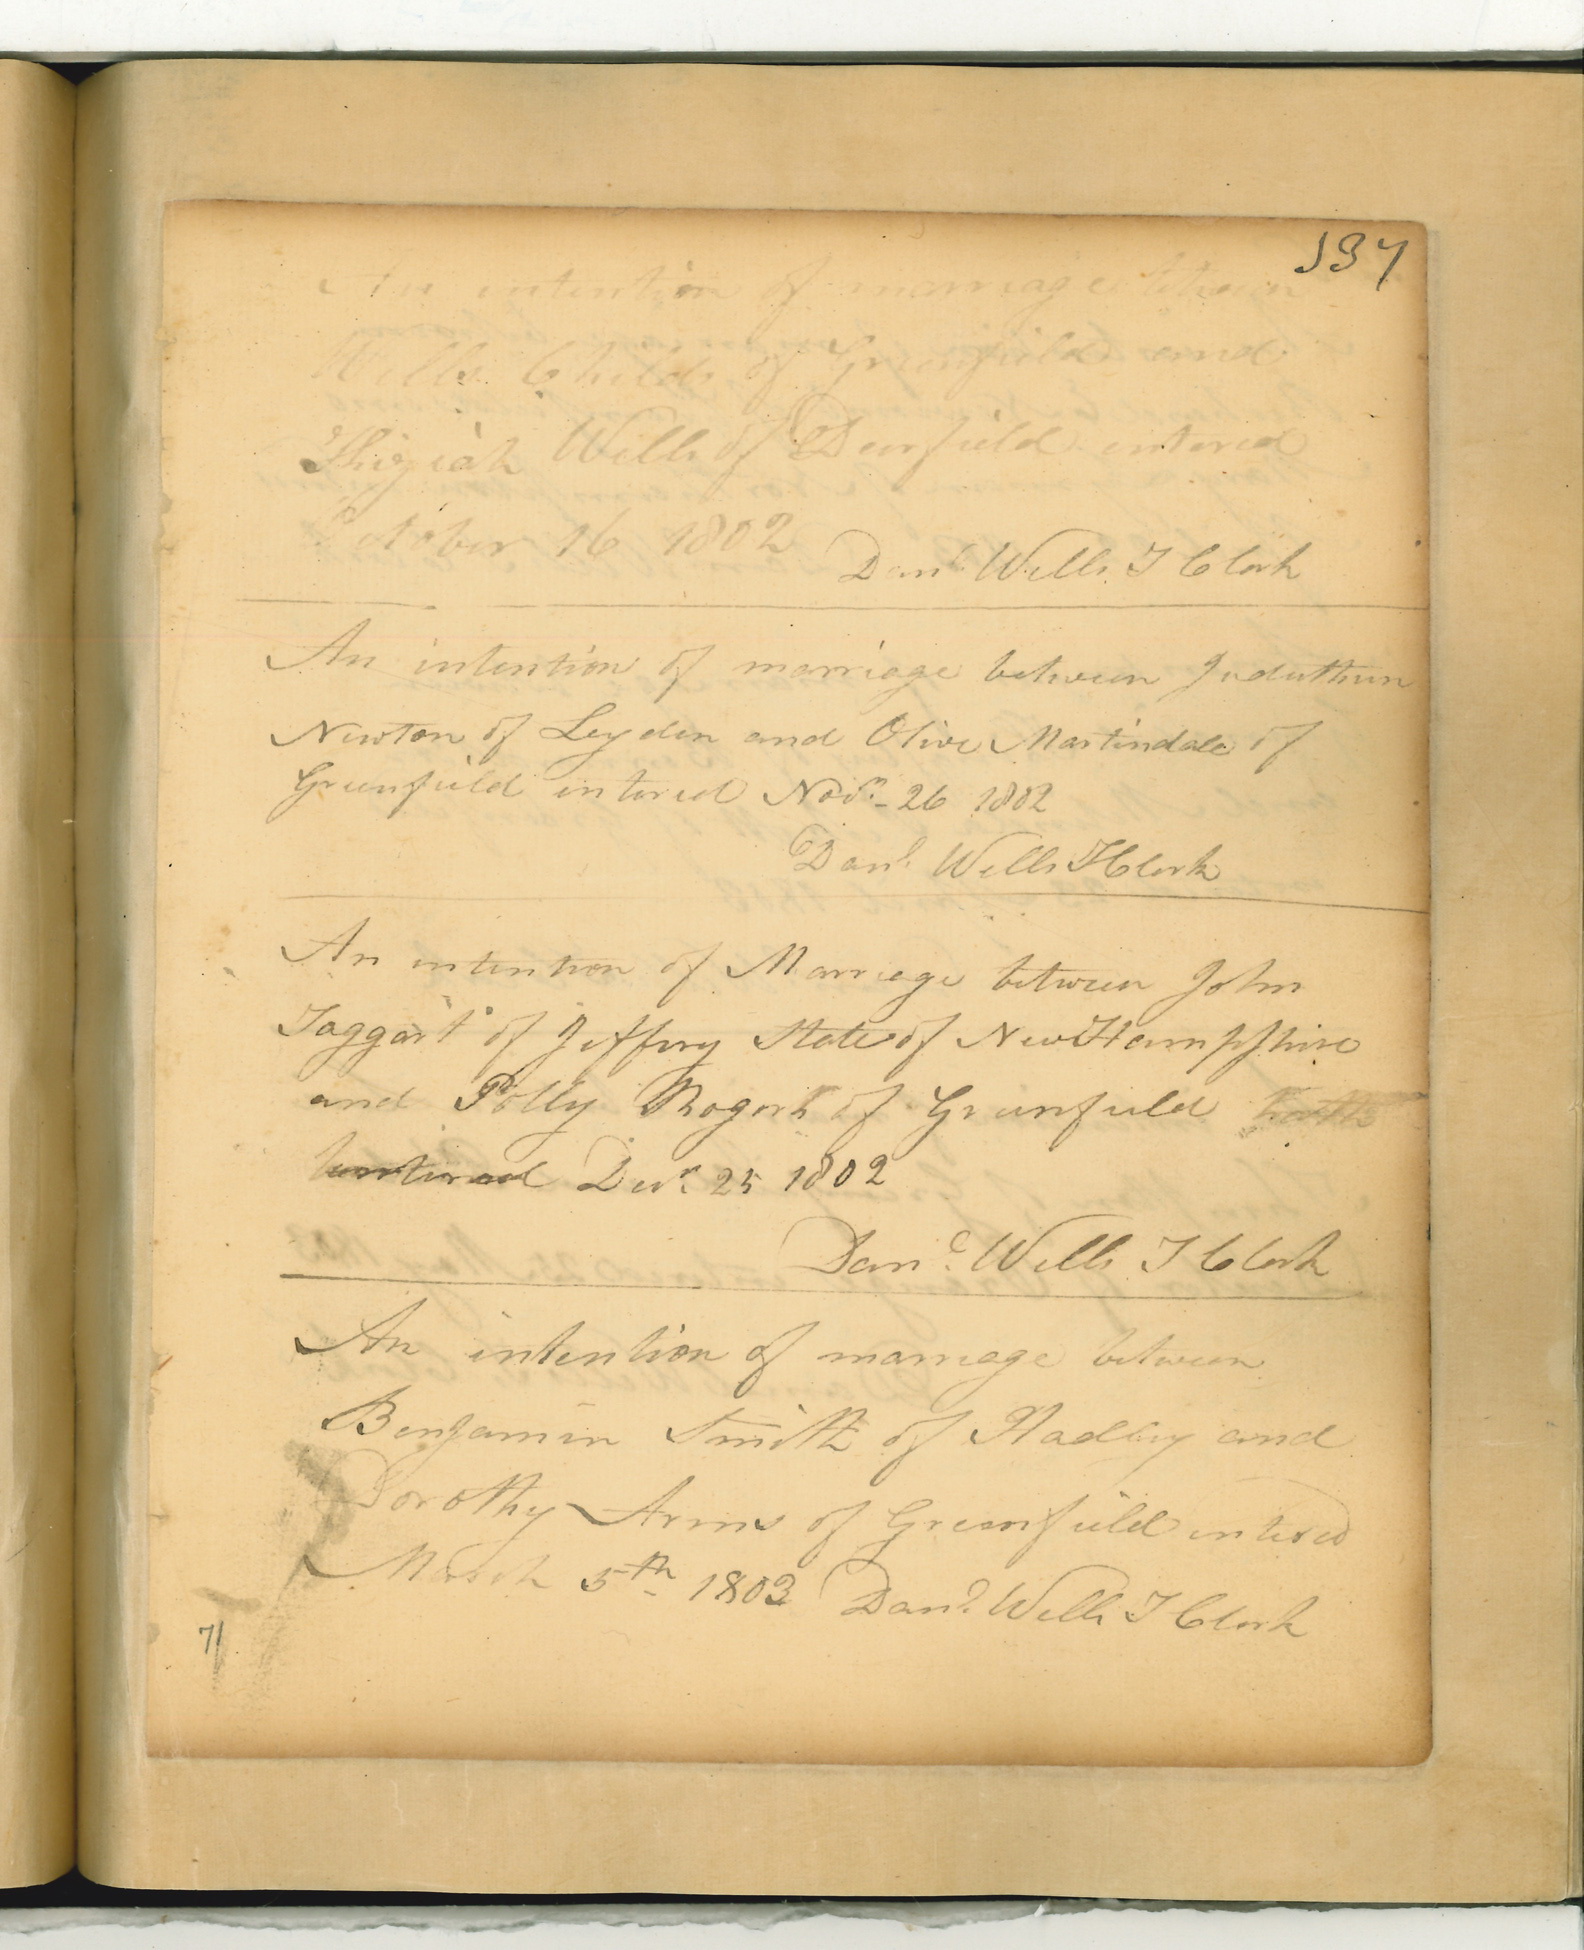 137
An intention of marriage between
Wells Childs of Greenfield and
Wells of Deerfield entered
October 16 1802
Danl. Wells T Clerk
An intention of marriage between Juduthun
Newton of Leyden and Olive Martindale of
Greenfield entered Novr. 26 1802
Danl. Wells T Clerk
An intention of Marriage between John
Taggart of Jeffery State of New Hampshire
and Polly of Greenfield
entered Decr. 25 1802
Danl. Wells T Clerk
An intention of marriage between
Benjamin Smith of Hadley and
Dorothy Arms of Greenfield entered
March 5th 1803 Danl. Wells T Clerk
71